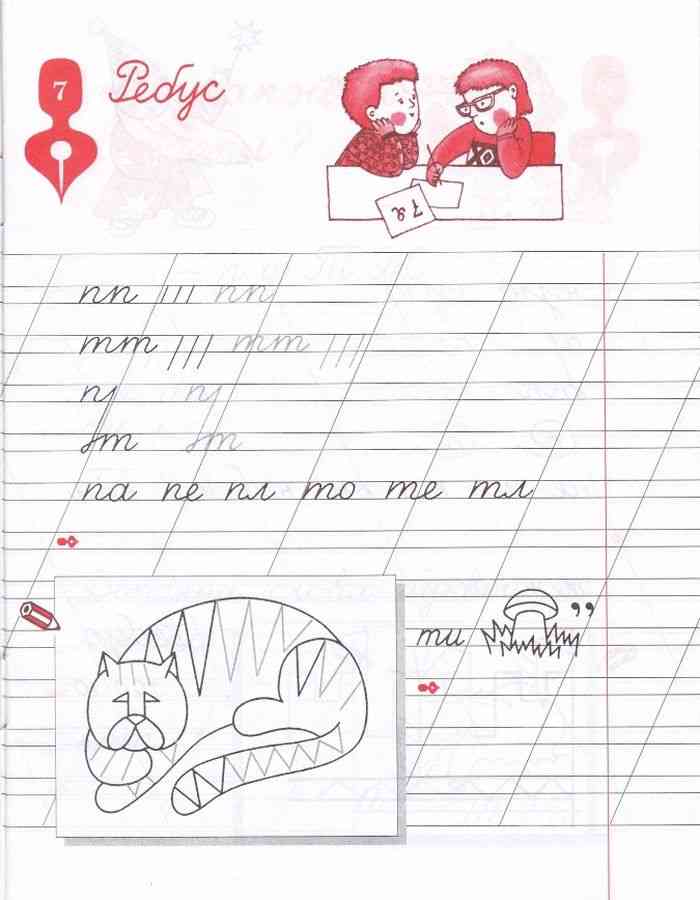 7 Ребус
7я
пп ııı пп
тт /// тт ///
па пе пл то те тл
ти ,,